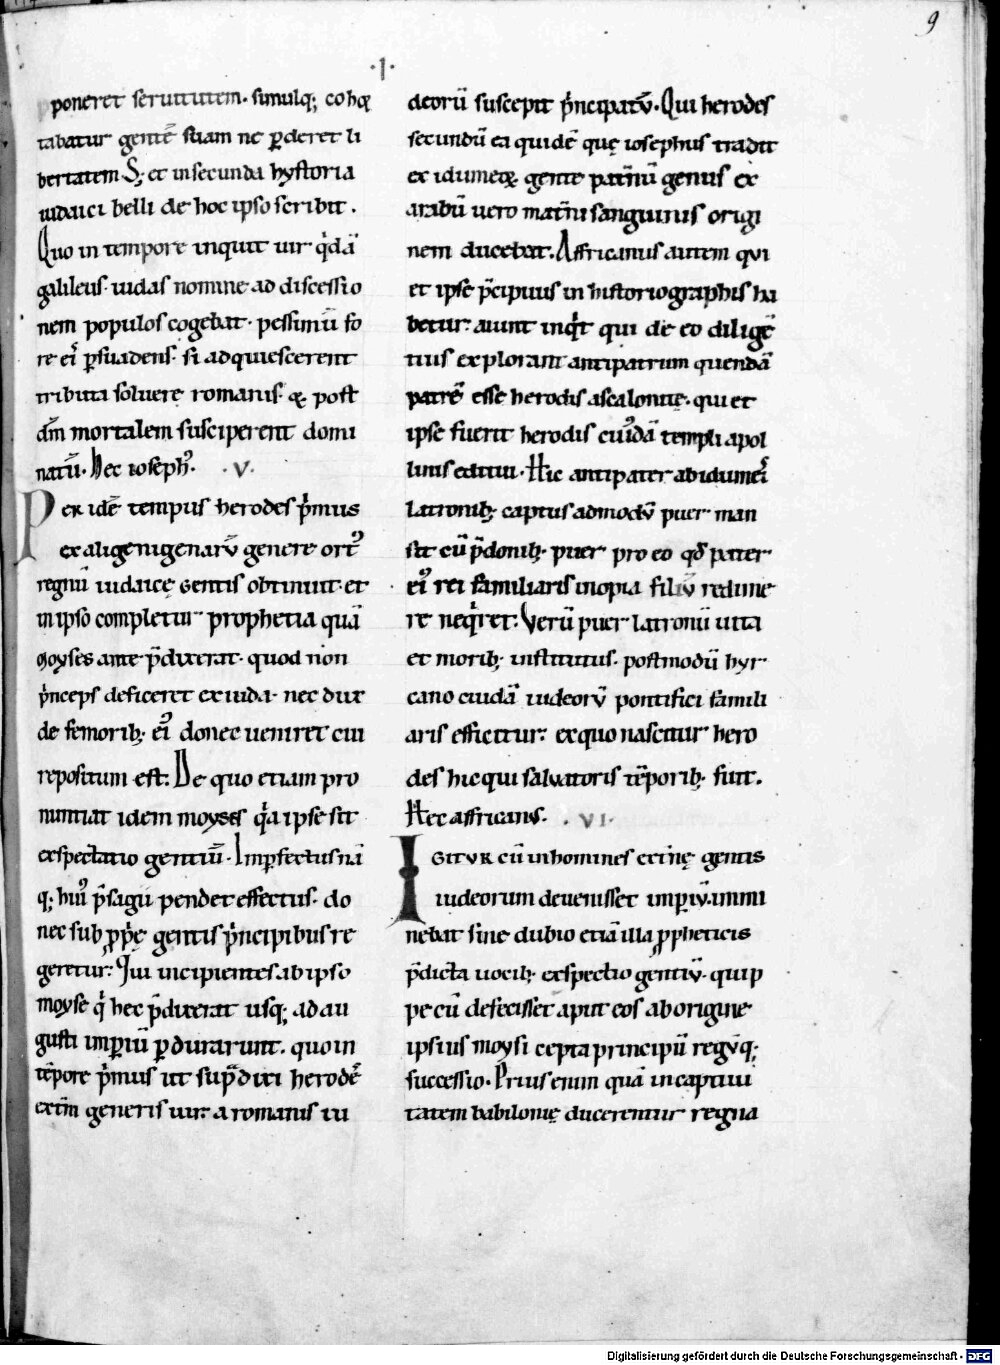 9
·I·
poneret seruitutem. simulq; cohor
tabatur gentē suam ne ꝑderet li
bertatem S; et insecunda hystoria
iudaici belli de hoc ipso scribit.
Quo in tempore inquit uir qͥdā
galileus. iudas nomine ad discessio
nem populos cogebat. pessimū fo
re eiˀ ꝑsuadens. si adquiescerent
tributa soluere romanis. & post
dm̄ mortalem susciperent domi
natū. Hec iosephˀ. ·V·
Per idē tempus herodes pͥmus
ex aligenigenarū genere ortˀ
regnū iudaicę gentis obtinuit. et
in ipso completur prophetia quā
moyses ante p̄dixerat. quod non
pͥnceps deficeret exiuda. nec dux
de femorib; eiˀ donec ueniret cui
repositum est. De quo etiam pro
nuntiat idem moyses qͥa ipse sit
exspectatio gentiū. Imperfectus nā
q; huiˀ p̄sagii pendet effectus. do
nec sub ꝓpͥę gentis pͥncipibus re
geretur. Qui incipientes ab ipso
moyse qͥ hec p̄dixerat usq; ad au
gusti imꝑiū ꝑdurarunt. quo in
tēpore pͥmus ut sup̄dixi herodē
extͥm generis uir. a romanis iu
deorū suscepit pͥncipatū. Qui herodes
secundū ea quidē quę iosephus tradit
ex idumeoꝝ gente patn̄ū genus ex
arabū uero matn̄i sanguinis origi
nem ducebat. Affricanus autem qui
et ipse p̄cipuus in historiographis ha
betur. aiunt inqͥt qui de eo diligē
tius explorant antipatrum quendā
patrē esse herodis ascalonitę. qui et
ipse fuerit herodis cuiˀdā templi apol
linis editui. Hic antipater ab idumeiˀ
latronib; captus admodū puer man
sit cū p̄donib; puer pro eo qđ pater
eiˀ rei familiaris inopia filiū redime
re neqͥret. Verū puer latronū uita
et morib; institutus. postmodū hyr
cano cuidā iudeorū pontifici famili
aris efficitur. ex quo nascitur hero
des hic qui saluatoris tēporib; fuit.
Hec affricanus. ·VI·
IGITVR cū in homines extͥnę gentis
iudeorum deuenisset imꝑiū. immi
nebat sine dubio etiā illa ꝓpheticis
p̄dicta uocib; exspectio gentiū. quip
pe cū defecisset aput eos ab origine
ipsius moysi cepta principū regūq;
successio. Prius enim quā in captiui
tatem babilonię ducerentur regna
Digitalisierung gefördert durch die Deutsche Forschungsgemeinschaft - DFG